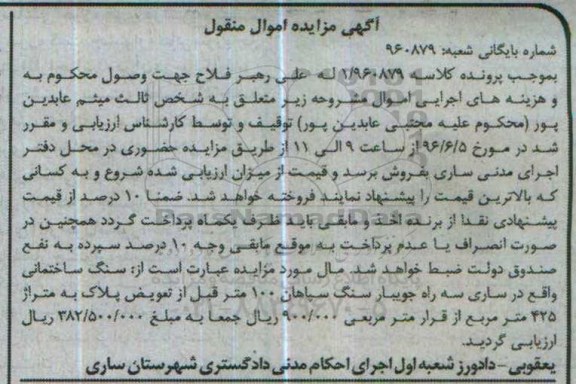 آگهی مزایده اموال منقول
شماره بایگانی شعبه: ۹۶۰۸۷۹
بموجب پرونده کلاسه ۱/۹۶۰۸۷۹ له علی رهبر فلاح جهت وصول محکوم به
و هزینه های اجرایی اموال مشروحه زیر متعلق به شخص ثالث میثم عابدین
پور (محکوم علیه مجتبی عابدین پور) توقیف و توسط کارشناس ارزیابی و مقرر
شد در مورخ ۹۶/۶/۵ از ساعت ۹ الی ۱۱ از طریق مزایده حضوری در محل دفتر
اجرای مدنی ساری بفروش برسد و قیمت از میزان ارزیابی شده شروع و به کسانی
که بالاترین قیمت را پیشنهاد نمایند فروخته خواهد شد. ضمنا ۱۰ درصد از قیمت
پیشنهادی نقدا از برنده اخذ و مابقی باید ظرف یکماه پرداخت گردد همچنین در
صورت انصراف یا عدم پرداخت به موقع مابقی وجه ۱۰ درصد سپرده به نفع
صندوق دولت ضبط خواهد شد. مال مورد مزایده عبارت است از: سنگ ساختمانی
واقع در ساری سه راه جویبار سنگ سپاهان ۱۰۰ متر قبل از تعویض پلاک به متراژ
۴۲۵ متر مربع از قرار متر مربعی ۹۰۰/۰۰۰ ریال جمعا به مبلغ ۳۸۲/۵۰۰/۰۰۰ ریال
ارزیابی گردید.
یعقوبی - دادورز شعبه اول اجرای احکام مدنی دادگستری شهرستان ساری